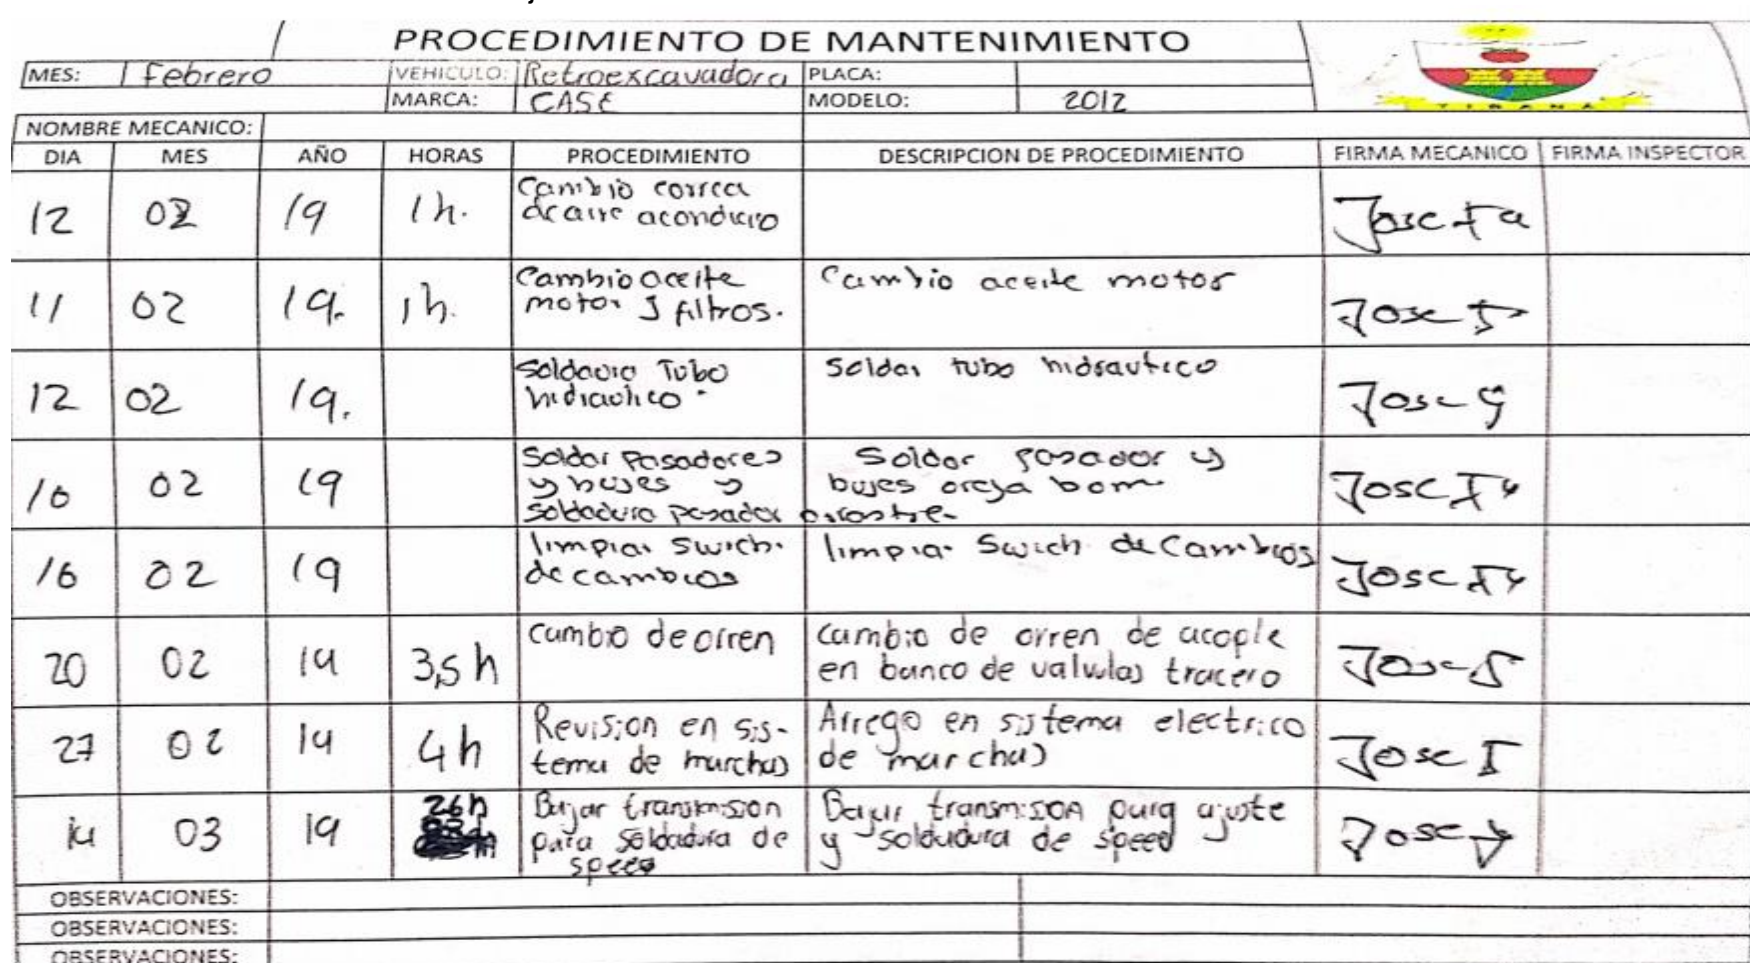 PROCEDIMIENTO DE MANTENIMIENTO
MES: Febrero VEHICULO: Retroexcavadora PLACA:
MARCA: CASE MODELO: 2012
TIBANA
NOMBRE MECANICO:
DIA MES AÑO HORAS PROCEDIMIENTO DESCRIPCION DE PROCEDIMIENTO FIRMA MECANICO FIRMA INSPECTOR
12 02 19 1h. Cambio correa
de aire acondicio
Jose
11 02 19. 1h. Cambio aceite
motor y filtros.
Cambio aceite motor
Jose
12 02 19. Soldavia Tubo
hidraulico.
Soldar tubo hidraulico
Jose
16 02 19 Soldar Pasadores
y bujes y
soldadura pasador arrastre.
Soldar pasador y
bujes oreja bom.
Jose
16 02 19 limpiar swich.
de cambios
limpiar Swich de Cambios
Jose
20 02 19 3,5 h cambio de orren
cambio de orren de acople
en banco de valvulas tracero
Jose
27 02 19 4h Revision en sis-
tema de marchas
Arrego en sistema electrico
de marchas
Jose
14 03 19 26h Bajar transmision
para soldadura de
speed
Bajar transmision para ajuste
y soldadura de speed
Jose
OBSERVACIONES:
OBSERVACIONES:
OBSERVACIONES: